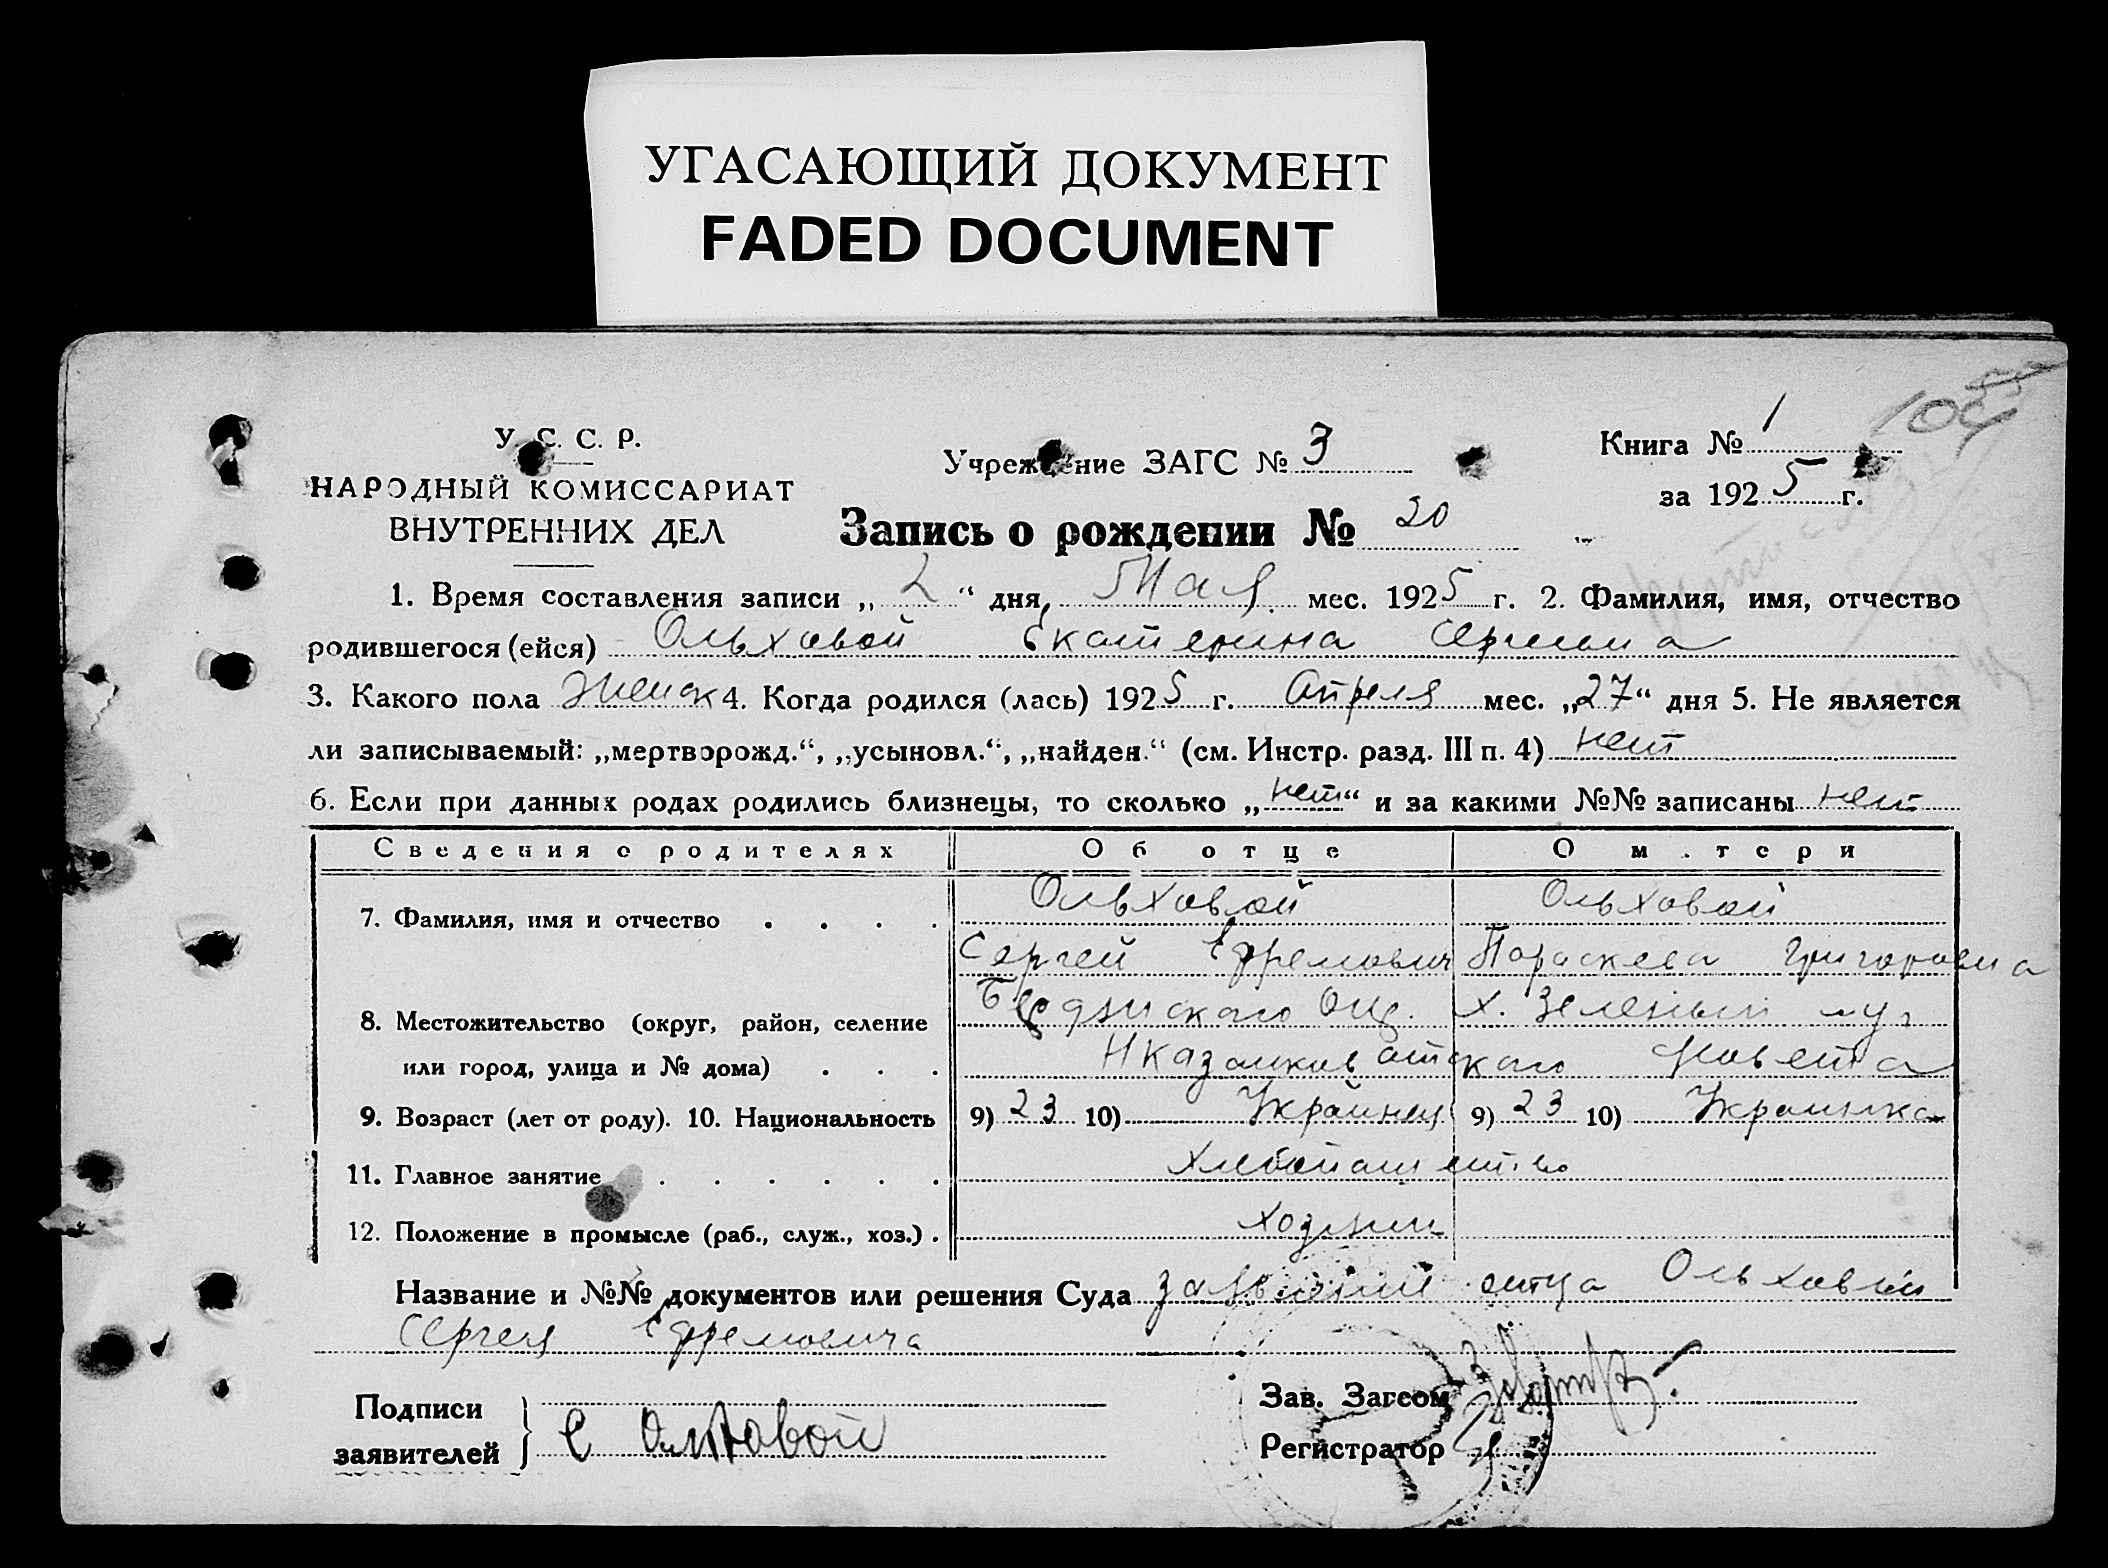 УГАСАЮЩИЙ ДОКУМЕНТ
FADED DOCUMENT
104
У. С. С. Р.
НАРОДНЫЙ КОМИССАРИАТ
ВНУТРЕННИХ ДЕЛ
Учреждение ЗАГС № 3
Книга № 1
за 1925 г.
Запись о рождении № 20
1. Время составления записи „ 2 “ дня, Мая мес. 1925 г. 2. Фамилия, имя, отчество
родившегося (ейся) Ольховой Екатерина Сергеевна
3. Какого пола Женск 4. Когда родился (лась) 1925 г. Апреля мес. „27“ дня 5. Не является
ли записываемый: „мертворожд.“, „усыновл.“, „найден.“ (см. Инстр. разд. III п. 4) нет
6. Если при данных родах родились близнецы, то сколько „нет“ и за какими №№ записаны нет
Сведения о родителях Об отце О м.тери
7. Фамилия, имя и отчество Ольховой Ольховой
Сергей Ефремович Параскева Григоровна
8. Местожительство (округ, район, селение х. Зеленый луг
или город, улица и № дома)
9. Возраст (лет от роду). 10. Национальность 9) 23 10) Украинец 9) 23 10) Украинка
11. Главное занятие Хлебопашество
12. Положение в промысле (раб., служ., хоз.) хозяин
Название и №№ документов или решения Суда отца Ольховой
Сергея Ефремовича
Подписи
заявителей С Ольховой
Зав. Загсом
Регистратор